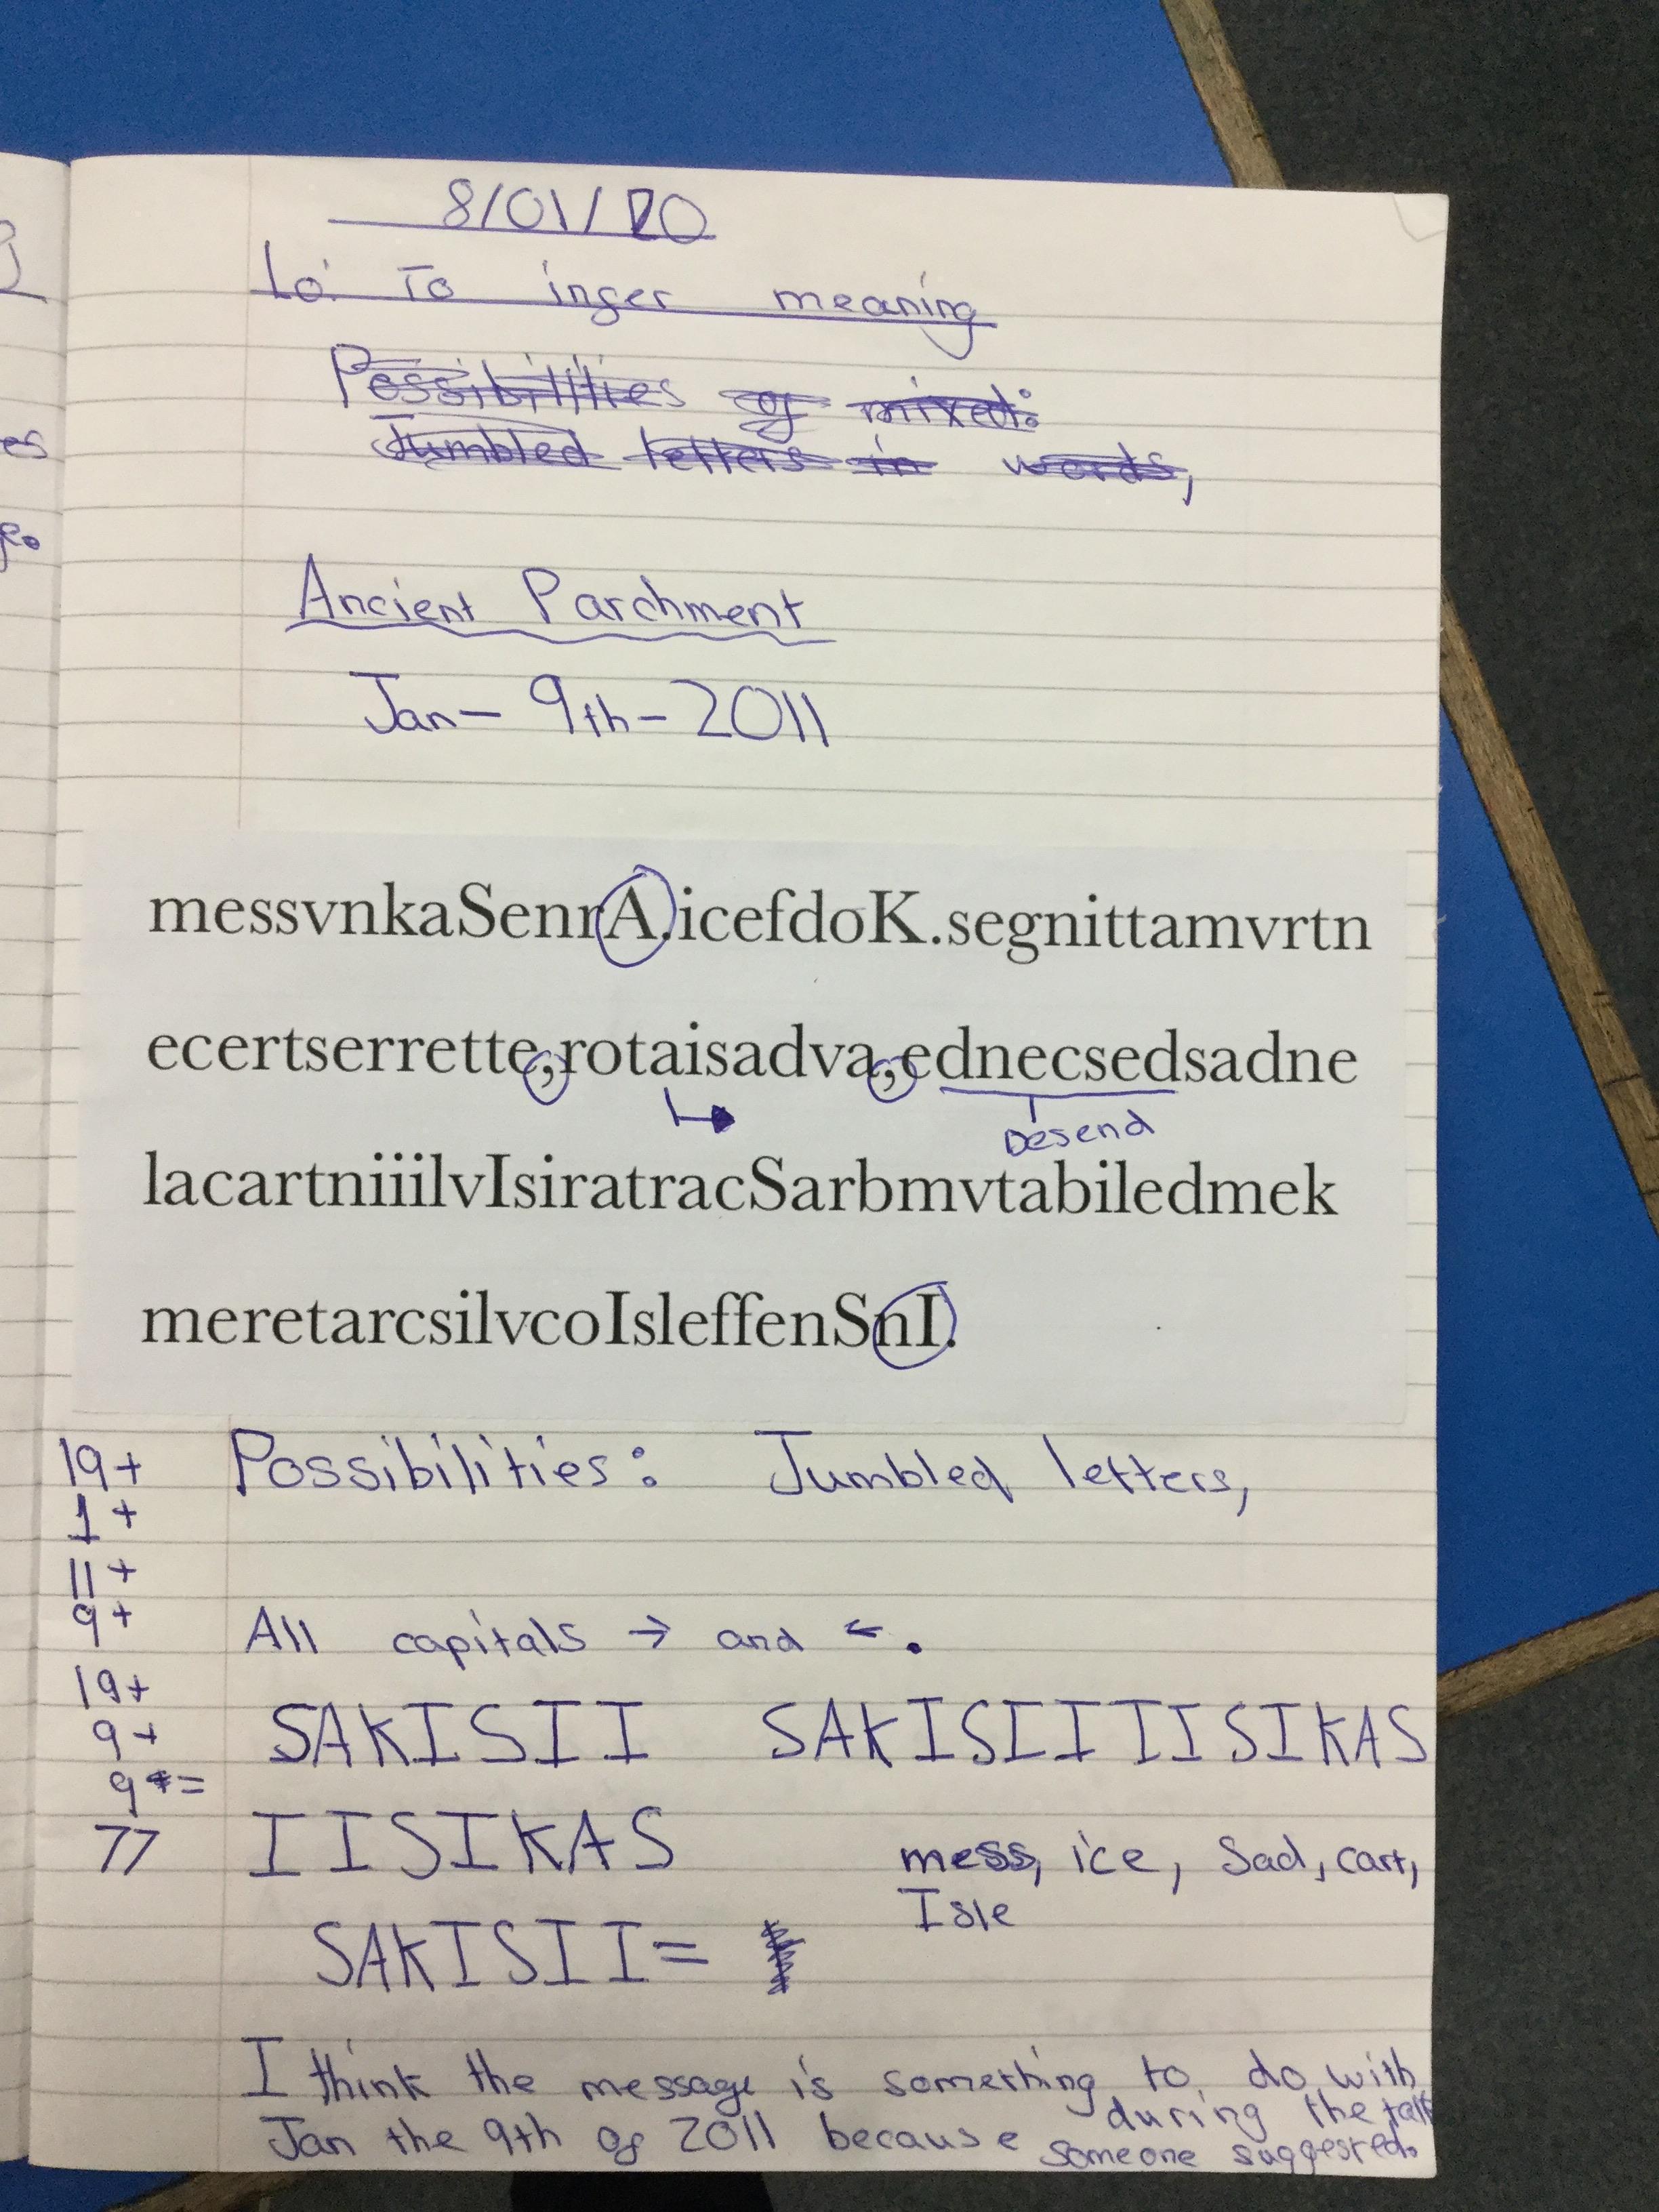 8/01/20
Lo: To inger meaning
Possibilities of mixed:
Jumbled letters in words,
es
Ancient Parchment
Jan- 9th-2011
messvnkaSenrA.icefdoK.segnittamvrtn
ecertserrette,rotaisadva,ednecsedsadne
Desend
lacartniiilvIsiratracSarbmvtabiledmek
meretarcsilvcoIsleffenSnI.
19+ Possibilities: Jumbled letters,
1+
11+
9+ All capitals → and ←.
19+
9+ SAKISII SAKISIIIISIKAS
9=
77 IISIKAS mess, ice, Sad, cart,
Isle
SAKISII=
I think the message is something to do with
Jan the 9th of 2011 because during the talk
someone suggested.